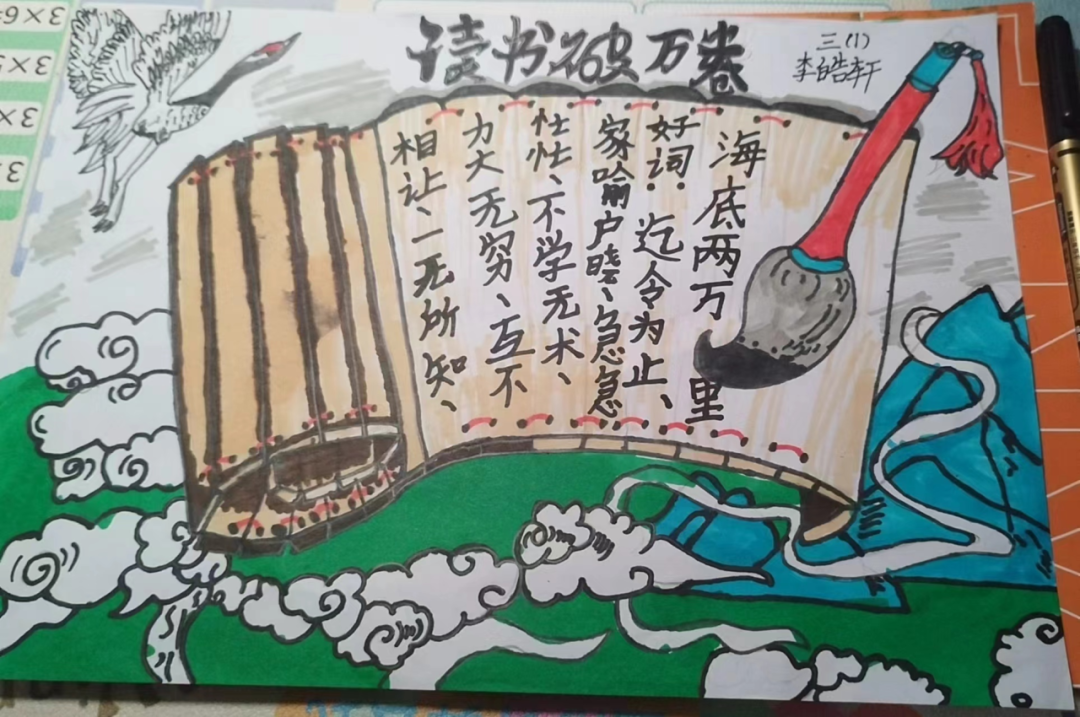 读书破万卷
三(1)
李皓轩
海底两万里
好词:迄令为止、
家喻户晓、急急
忙忙、不学无术、
力大无穷、互不
相让、一无所知、